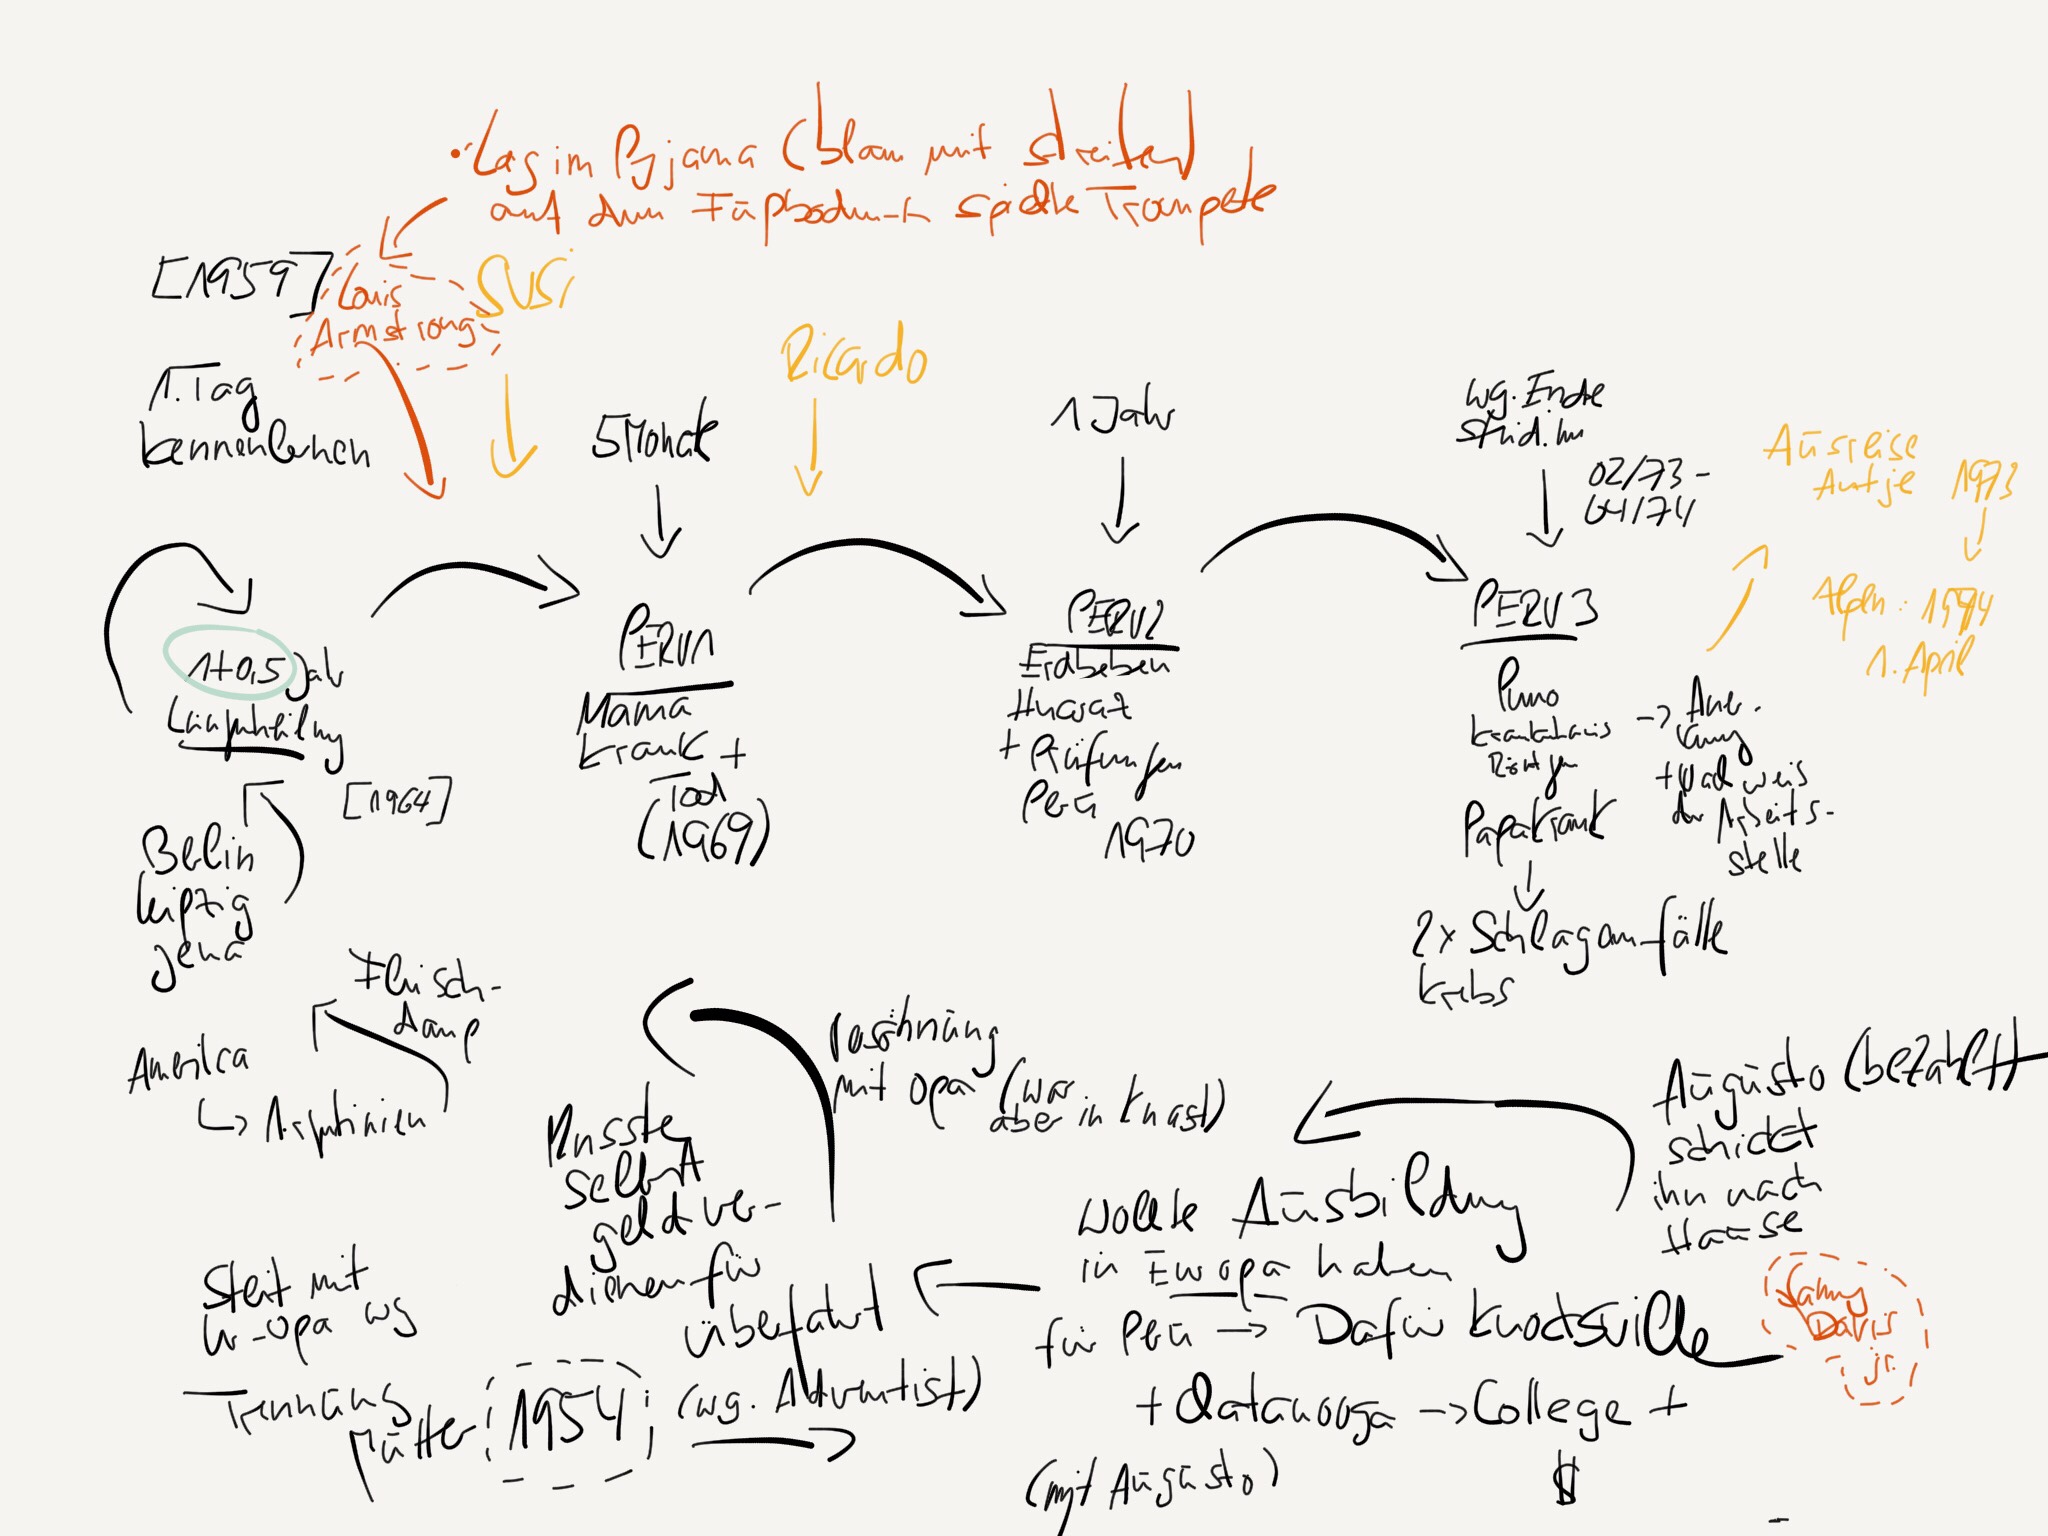 • Lag im Pyjama (blau mit Streifen)
auf dem Fußboden + spielte Trompete
[1959]
Louis
Armstrong
SUSi
1. Tag
kennenlernen
5 Monate
Ricardo
1 Jahr
wg. Ende
02/73 -
04/74
Ausreise
Antje 1973
1. April
1+0,5 Jahr
[1964]
Berlin
Leipzig
Jena
PERU 1
Mama
krank +
Tod
(1969)
PERU 2
Erdbeben
Huaraz
+ Prüfungen
Peru
1970
PERU 3
Puno
Krankenhaus
Röntgen
-> Aner.
kung
der Arbeits-
stelle
Papa krank
2x Schlaganfälle
Krebs
Amerika
Fleisch-
damp
Musste
selbst
geld ver-
dienen für
überfahrt
(wg. Adventist)
mit Opa (war
aber in Knast)
Augusto (bezahlt)
schickt
ihn nach
Hause
wollte Ausbildung
in Europa haben
für Peru -> Dafür
-> College +
$
(mit Augusto)
Davis
jr.
mit
Opa wg
Trennung
Mutter
1954